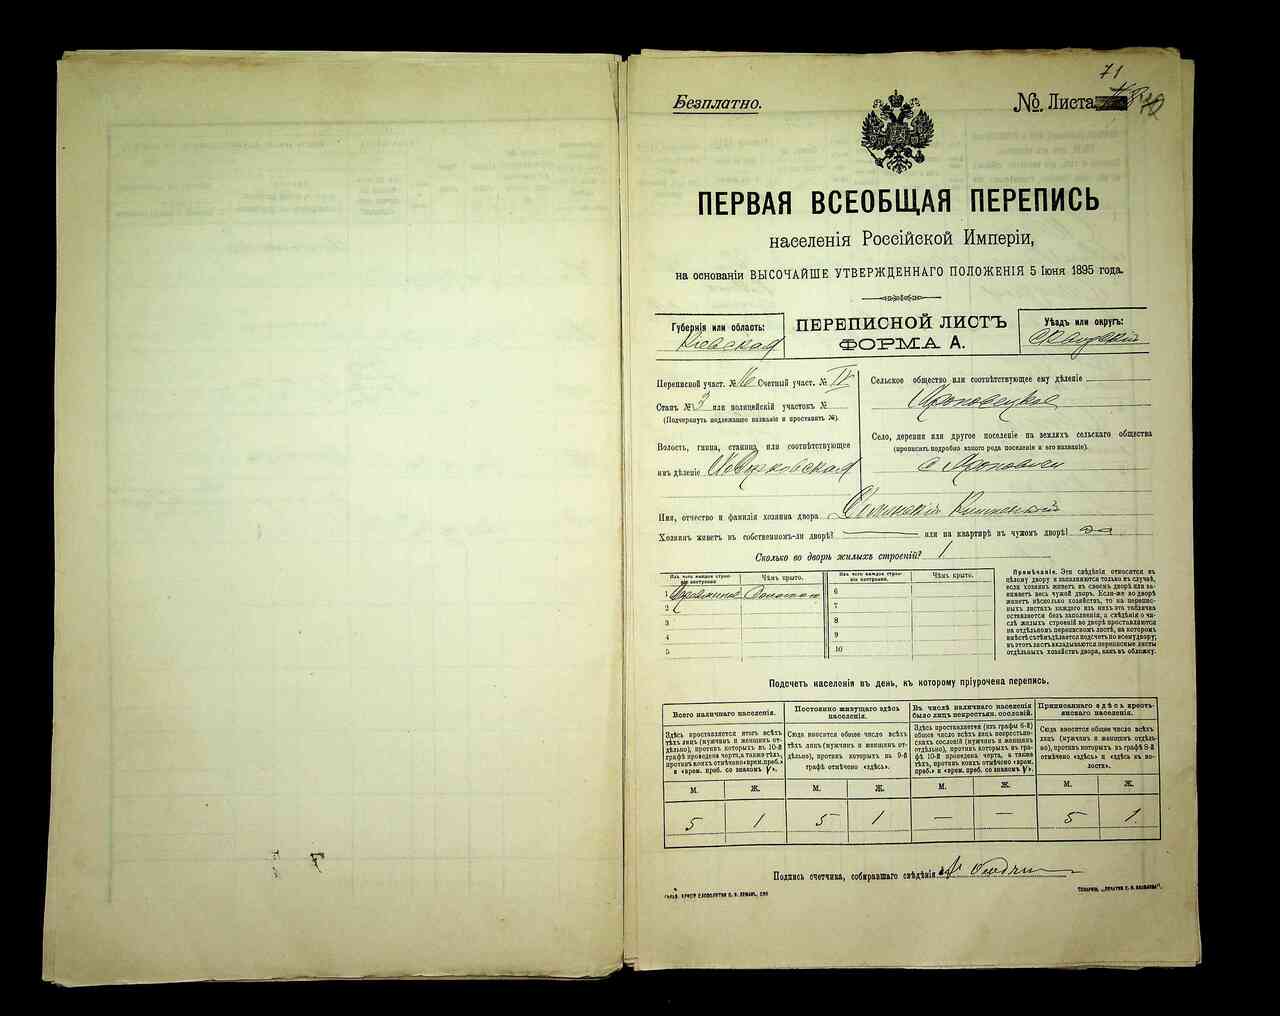 71
Безплатно.
№. Листа
ПЕРВАЯ ВСЕОБЩАЯ ПЕРЕПИСЬ
населенія Россійской Имперіи,
на основаніи ВЫСОЧАЙШЕ УТВЕРЖДЕННАГО ПОЛОЖЕНІЯ 5 Іюня 1895 года.
Губернія или область:
Кіевская
ПЕРЕПИСНОЙ ЛИСТЪ
ФОРМА А.
Уѣздъ или округъ:
Сквирскій
Переписной участ. № 16 Счетный участ. №
Станъ № 3 или полицейскій участокъ №
(Подчеркнуть подлежащее названіе и проставить №).
Волость, гмина, станица или соотвѣтствующее
имъ дѣленіе
Сельское общество или соотвѣтствующее ему дѣленіе
Село, деревня или другое поселеніе на земляхъ сельскаго общества
(прописать подробно какого рода поселеніе и его названіе).
с
Имя, отчество и фамилія хозяина двора
Хозяинъ живетъ въ собственномъ-ли дворѣ? или на квартирѣ въ чужомъ дворѣ? да
Сколько во дворѣ жилыхъ строеній? 1
Изъ чего каждое строеніе построено.
Чѣмъ крыто.
Изъ чего каждое строеніе построено.
Чѣмъ крыто.
1 Соломой
2
3
4
5
6
7
8
9
10
Примѣчаніе. Эти свѣдѣнія относятся къ
цѣлому двору и заполняются только въ случаѣ,
если хозяинъ живетъ въ своемъ дворѣ или за-
нимаетъ весь чужой дворъ. Если-же во дворѣ
живетъ нѣсколько хозяйствъ, то на перепис-
ныхъ листахъ каждаго изъ нихъ эта табличка
оставляется безъ заполненія, а свѣдѣнія о чи-
слѣ жилыхъ строеній во дворѣ проставляются
на отдѣльномъ переписномъ листѣ, на которомъ
вмѣстѣ съ тѣмъ дѣлается подсчетъ по всему двору;
въ этотъ листъ вкладываются переписные листы
отдѣльныхъ хозяйствъ двора, какъ въ обложку.
Подсчетъ населенія въ день, къ которому пріурочена перепись.
Всего наличнаго населенія.
Здѣсь проставляется итогъ всѣхъ
тѣхъ лицъ (мужчинъ и женщинъ от-
дѣльно), противъ которыхъ въ 10-й
графѣ проведена черта, а также тѣхъ,
противъ коихъ отмѣчено «врем. преб.»
и «врем. преб. со знакомъ V».
Постоянно живущаго здѣсь
населенія.
Сюда вносится общее число всѣхъ
тѣхъ лицъ (мужчинъ и женщинъ от-
дѣльно), противъ которыхъ въ 9-й
графѣ отмѣчено «здѣсь».
Въ числѣ наличнаго населенія
было лицъ некрестьян. сословій.
Здѣсь проставляется (изъ графы 6-й)
общее число всѣхъ лицъ некрестьян-
скихъ сословій (мужчинъ и женщинъ
отдѣльно), противъ которыхъ въ гра-
фѣ 10-й проведена черта, а также
тѣхъ, противъ коихъ отмѣчено «врем.
преб.» и «врем. преб. со знакомъ V».
Приписаннаго здѣсь кресть-
янскаго населенія.
Сюда вносится общее число всѣхъ
лицъ (мужчинъ и женщинъ отдѣль-
но), противъ которыхъ въ графѣ 8-й
отмѣчено «здѣсь» и «здѣсь въ во-
лости».
М. Ж. М. Ж. М. Ж. М. Ж.
5 1 5 1 — — 5 1
Подпись счетчика, собиравшаго свѣдѣнія